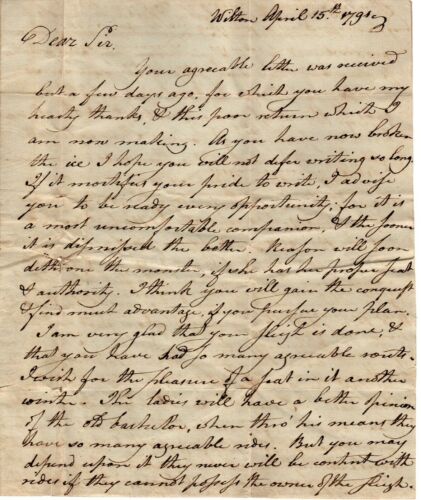 Wilton April 15th 179
Dear Sir.
Your agreeable letter was received
but a few days ago, for which you have my
hearty thanks, & this poor return which I
am now making. As you have now broken
the ice I hope you will not defer writing so long.
If it mortifies your pride to write, I advise
you to be ready every opportunity; for it is
a most uncomfortable companion, & the sooner
it is dismissed the better. Reason will soon
dethrone the monster, if she has her proper seat
& authority. I think you will gain the conquest
& find much advantage, if you pursue your plan.
I am very glad that your sleigh is done, &
that you have had so many agreeable
I wish for the pleasure of a seat in it another
winter. The ladies will have a better opinion
of the old bachelor, when thro' his means they
have so many agreeable rides. But you may
depend upon it they never will be content with
rides if they cannot possess the owner of the sleigh.